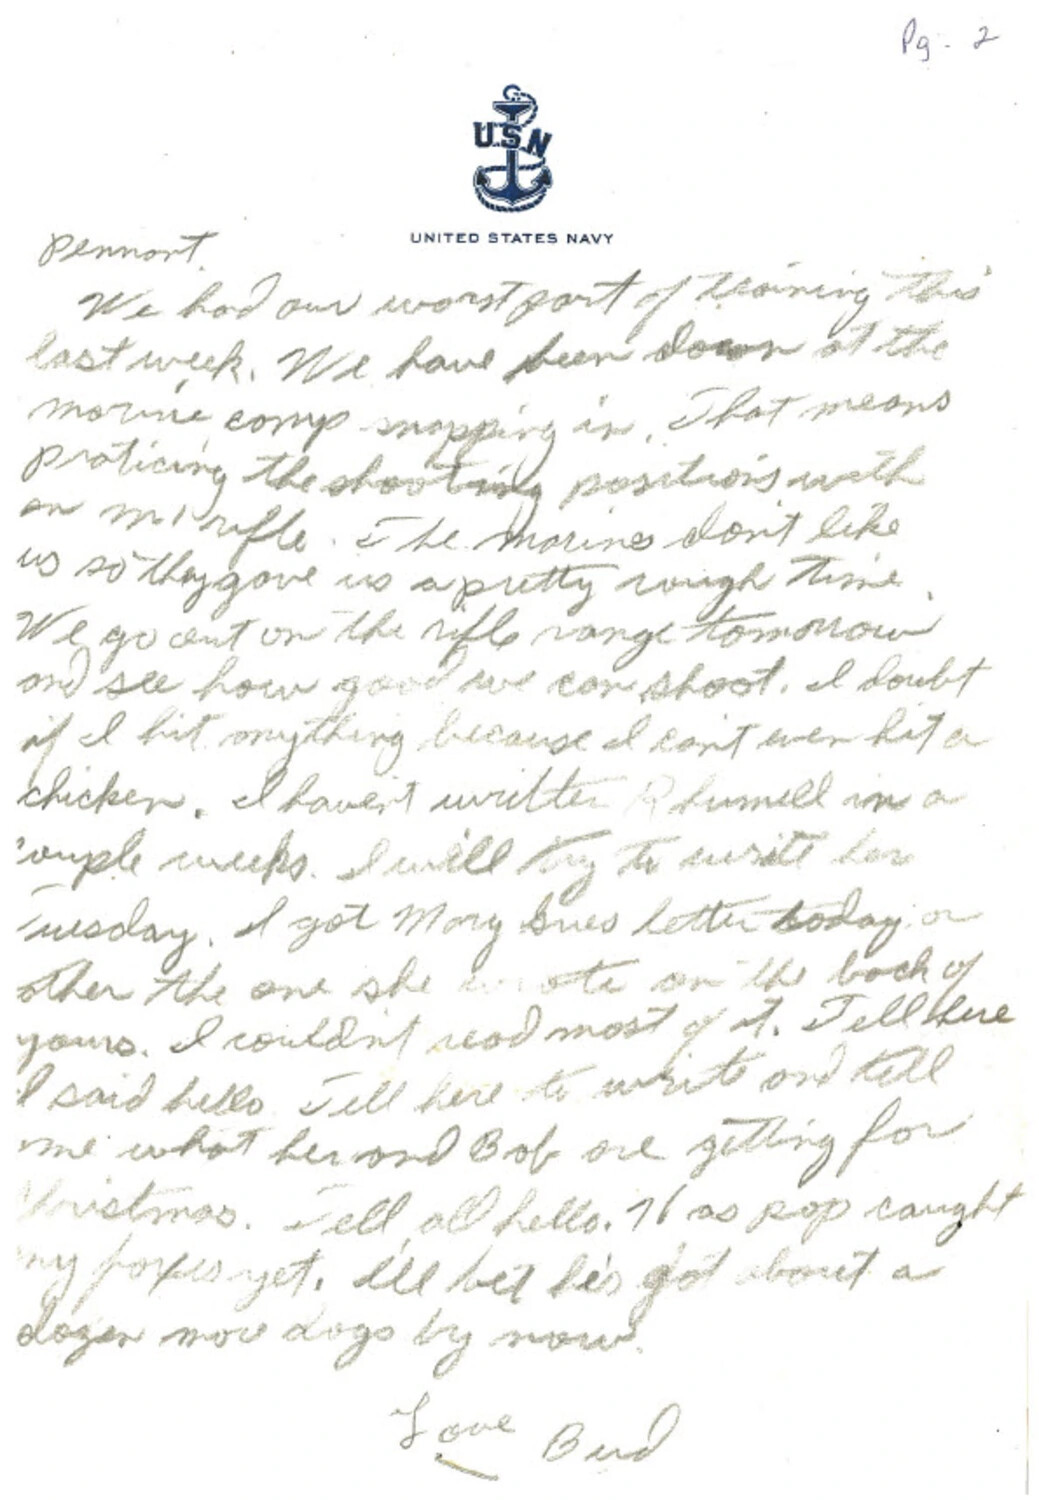 Pg. 2
USN
UNITED STATES NAVY
Pennant.
We had our worst part of training this
last week. We have been down at the
marine camp snapping in. That means
praticing the shooting positions with
an M1 rifle. The Marines don't like
us so they gave us a pretty rough time.
We go out on the rifle range tomorrow
and see how good we can shoot. I doubt
if I hit anything because I can't even hit a
chicken. I haven't written in a
couple weeks. I will try to write her
Tuesday. I got Mary Sues letter today or
other the one she wrote on the back of
yours. I couldn't read most of it. Tell here
I said hello. Tell here to write and tell
me what her and Bob are getting for
Christmas. Tell all hello. Has pop caught
any foxes yet. I'll bet he's got about a
dozen more dogs by now.
Love Bud